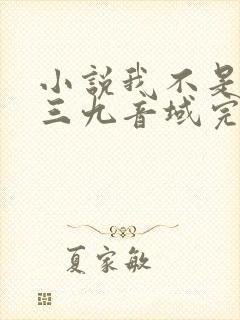 小說我不是
三九音域完
夏家敏